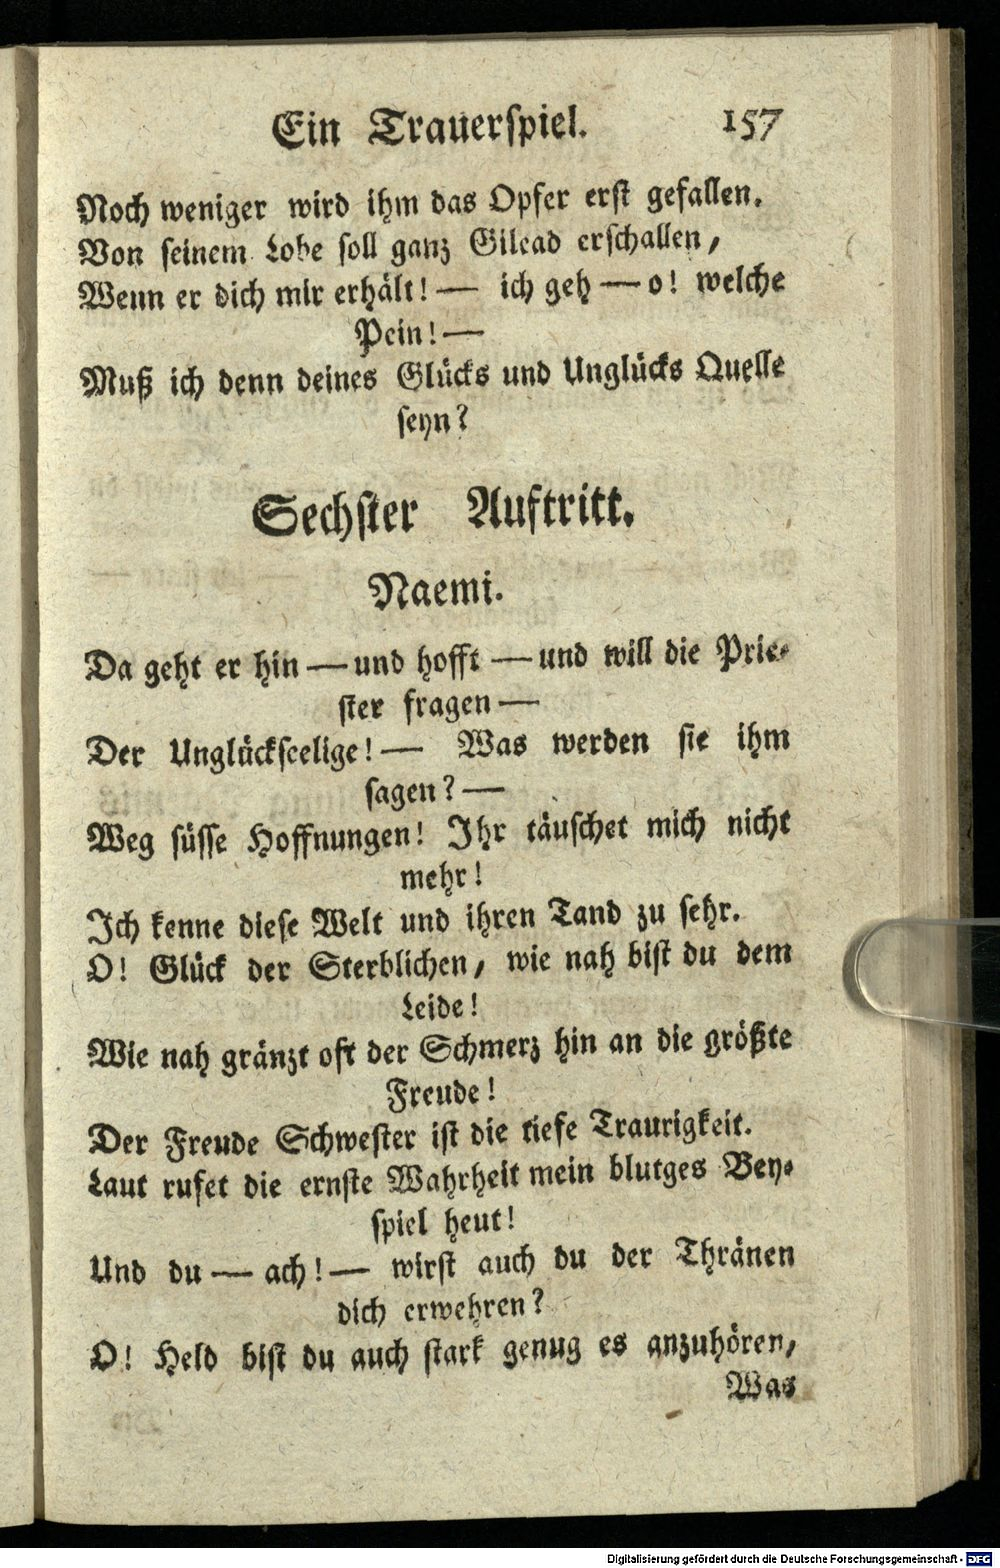 Ein Trauerspiel. 157
Noch weniger wird ihm das Opfer erst gefallen.
Von seinem Lobe soll ganz Gilead erschallen,
Wenn er dich mir erhält! — ich geh — o! welche
Pein! —
Muß ich denn deines Glücks und Unglücks Quelle
seyn?
Sechster Auftritt.
Naemi.
Da geht er hin — und hofft — und will die Prie-
ster fragen —
Der Unglückseelige! — Was werden sie ihm
sagen? —
Weg süsse Hoffnungen! Ihr täuschet mich nicht
mehr!
Ich kenne diese Welt und ihren Tand zu sehr.
O! Glück der Sterblichen, wie nah bist du dem
Leide!
Wie nah gränzt oft der Schmerz hin an die größte
Freude!
Der Freude Schwester ist die tiefe Traurigkeit.
Laut rufet die ernste Wahrheit mein blutges Bey-
spiel heut!
Und du — ach! — wirst auch du der Thränen
dich erwehren?
O! Held bist du auch stark genug es anzuhören,
Was
Digitalisierung gefördert durch die Deutsche Forschungsgemeinschaft - DFG